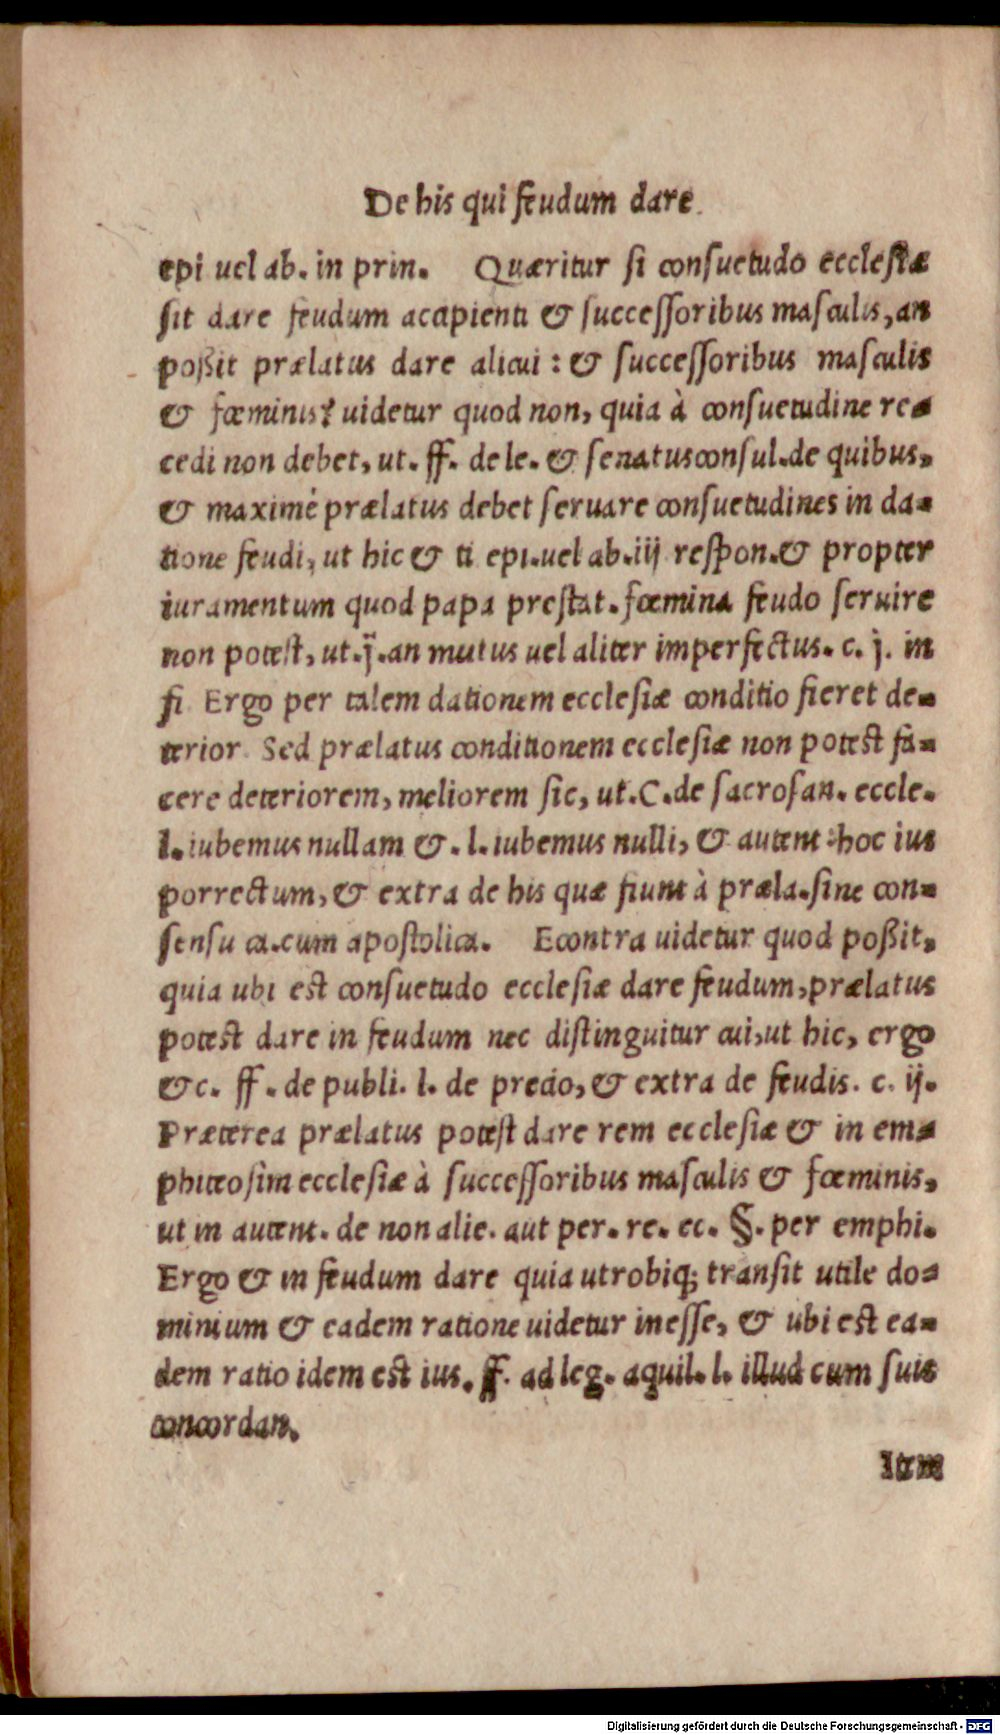 De his qui feudum dare.
epi uel ab. in prin. Quæritur si consuetudo ecclesiæ
sit dare feudum accipienti & successoribus masculis, an
poßit prælatus dare alicui : & successoribus masculis
& fœminis? uidetur quod non, quia à consuetudine re-
cedi non debet, ut. ff. de le. & senatusconsul. de quibus,
& maximè prælatus debet seruare consuetudines in da-
tione feudi, ut hic & ti epi. uel ab. iij respon. & propter
iuramentum quod papa prestat. fœmina feudo seruire
non potest, ut. j. an mutus uel aliter imperfectus. c. j. in
fi Ergo per talem dationem ecclesiæ conditio fieret de-
terior. Sed prælatus conditionem ecclesiæ non potest fa-
cere deteriorem, meliorem sic, ut. C. de sacrosan. eccle.
l. iubemus nullam &. l. iubemus nulli, & autent : hoc ius
porrectum, & extra de his quæ fiunt à præla. sine con-
sensu ca. cum apostolica. Econtra uidetur quod poßit,
quia ubi est consuetudo ecclesiæ dare feudum, prælatus
potest dare in feudum nec distinguitur cui, ut hic, ergo
&c. ff. de publi. l. de precio, & extra de feudis. c. ij.
Præterea prælatus potest dare rem ecclesiæ & in em-
phiteosim ecclesiæ à successoribus masculis & fœminis,
ut in autent. de non alie. aut per. re. ec. §. per emphi.
Ergo & in feudum dare quia utrobiq; transit utile do-
minium & eadem ratione uidetur inesse, & ubi est ea-
dem ratio idem est ius. ff. ad leg. aquil. l. illud cum suis
concordan.
Item
Digitalisierung gefördert durch die Deutsche Forschungsgemeinschaft - DFG